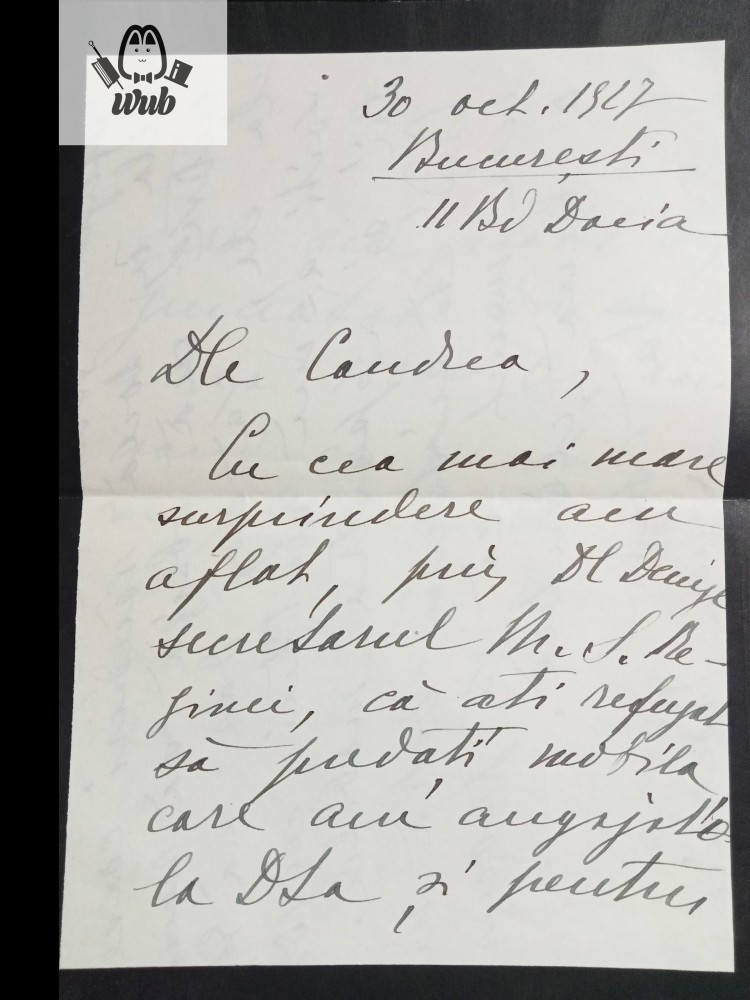 wub
30 oct. 1927
București
11 Bd Dacia
Dle Candrea,
Cu cea mai mare
surprindere am
aflat, prin Dl
secretarul M. S. Re-
ginei, că ati refuzat
să predați mobila
care am angajat'o
la DSa și pentru